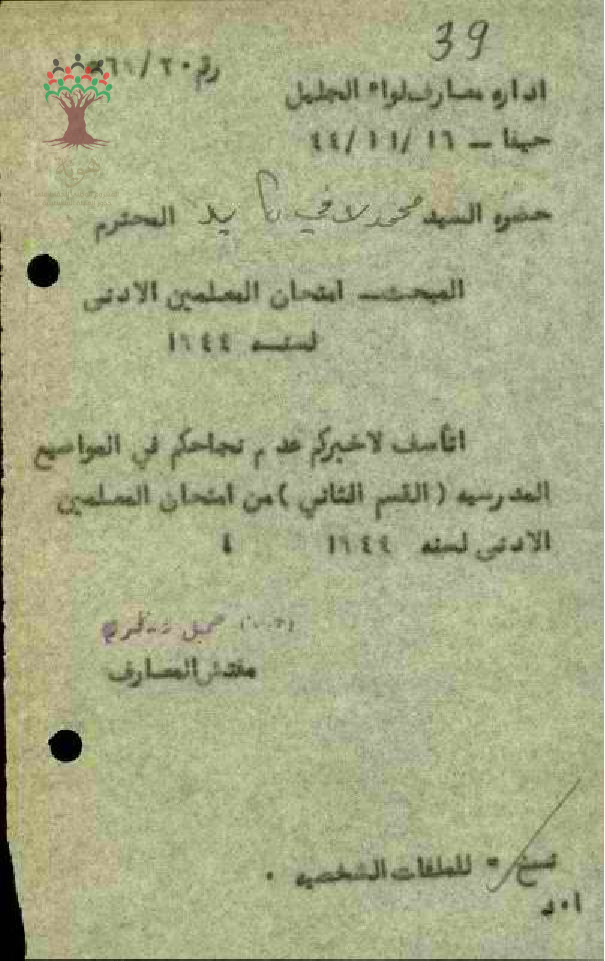 39
رقم ٢٠/
اداره معارف لواء الجليل
حيفا – ١٦/١١/٤٤
حضره السيد محمد المحترم
المبحث – امتحان المعلمين الادنى
لسنه ١٩٤٤
اتأسف لاخبركم عدم نجاحكم في المواضيع
المدرسيه (القسم الثاني) من امتحان المعلمين
الادنى لسنه ١٩٤٤
مفتش المعارف
نسخ = للملفات الشخصيه .